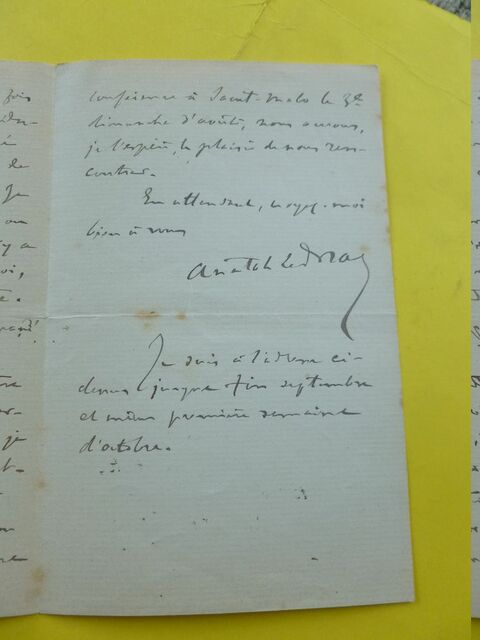 fois
de
Je
ou
y a
conférence à Saint-Malo le 3e
dimanche d'août, nous aurons,
je l'espère, le plaisir de nous ren-
contrer.
En attendant, croyez-moi
bien à vous
Anatole Le Braz
Je suis à l'adresse ci-
dessus jusque fin septembre
et même première semaine
d'octobre.
je